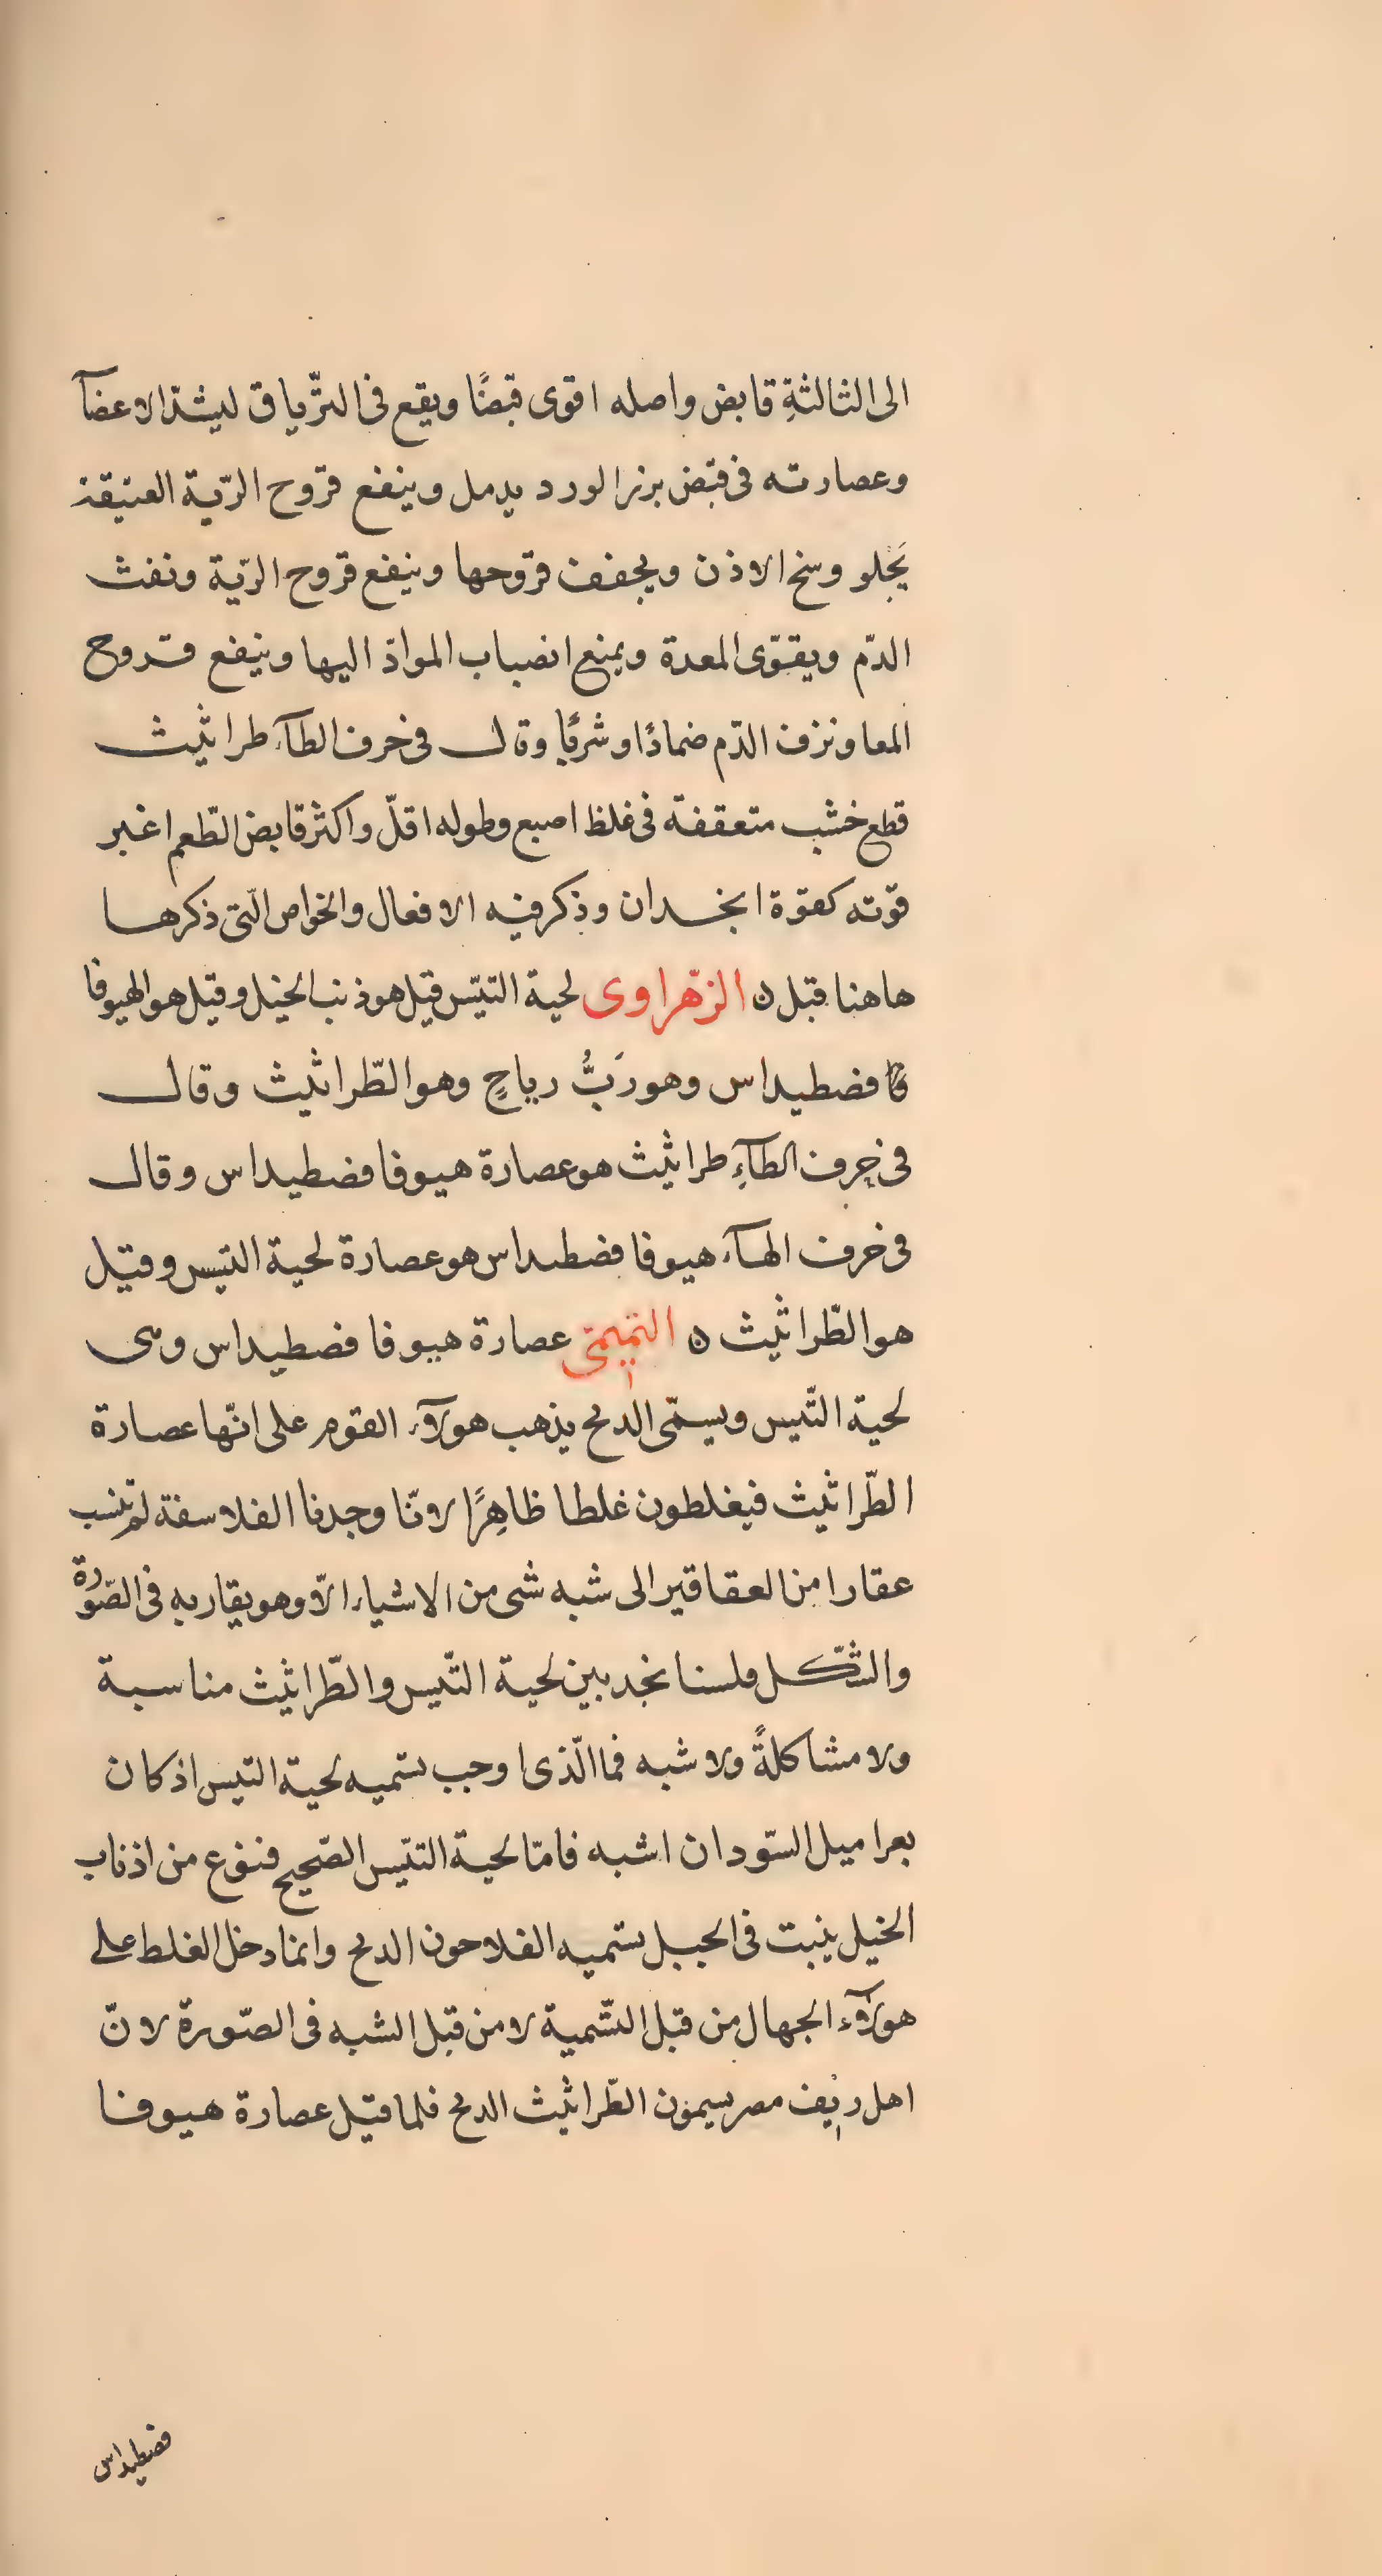 الى الثالثةِ قابض واصله اقوى قبضًا ويقع فى التّرياق ليشدّ الاعضآ
وعصارته فى قبض بزر الورد يدمل وينفع قروح الرّية العتيقة
يَجلو وسخ الاذن ويجفف قروحها وينفع قروح الرّية ونفث
الدّم ويقوّى المعدة ويمنع انصباب الموادّ اليها وينفع قروح
المعا ونزف الدّم ضمادًا وشربًا وقال فى حرف الطآء طراثيث
قطع خشب متعقفة فى غلظ اصبع وطوله اقلّ واكثر قابض الطّعم اغبر
قوّته كقوّة ابخدان وذكر فيه الافعال والخواص الّتى ذكرها
هاهنا قبل ن الزّهراوى لحية التيّس قيل هو ذنب الخيل وقيل هو الهيوفا
فضطيداس وهو رَبُّ رياحٍ وهو الطّراثيث وقال
فى حرف الطآءِ طراثيث هو عصارة هيوفا فضطيداس وقال
فى حرف الهآء هيوفا فضطىداس هو عصارة لحية التيس وقيل
هو الطّراثيث ن التميمى عصارة هيوفا فضطيداس وهى
لحية التّيس ويسمّى الدبح يذهب هولآء القوم على انّها عصارة
الطّراثيث فيغلطون غلطا ظاهِرًا لانّا وجدنا الفلاسفة لم تنسب
عقارا من العقاقير الى شبه شى من الاشياء الاّ وهو يقاربه فى الصّورة
والشّكل فلسنا نجد بين لحية التّيس والطّراثيث مناسبة
ولا مشاكلةً ولا شبه فما الّذى اوجب يسّميه لحية التيس اذ كان
بعراميل السّودان اشبه فامّا لحية التيّس الصّحيح فنوع من اذناب
الخيل ينبت فى الجبل يسّميه الفلاحون الدبح وانما دخل الغلط على
هولآء الجهال من قبل التّسمية لا من قبل الشبه فى الصّورة لانّ
اهل ريف مصر يسمون الطّراثيث الدبح فلما قيل عصارة هيوفا
فضطيداس